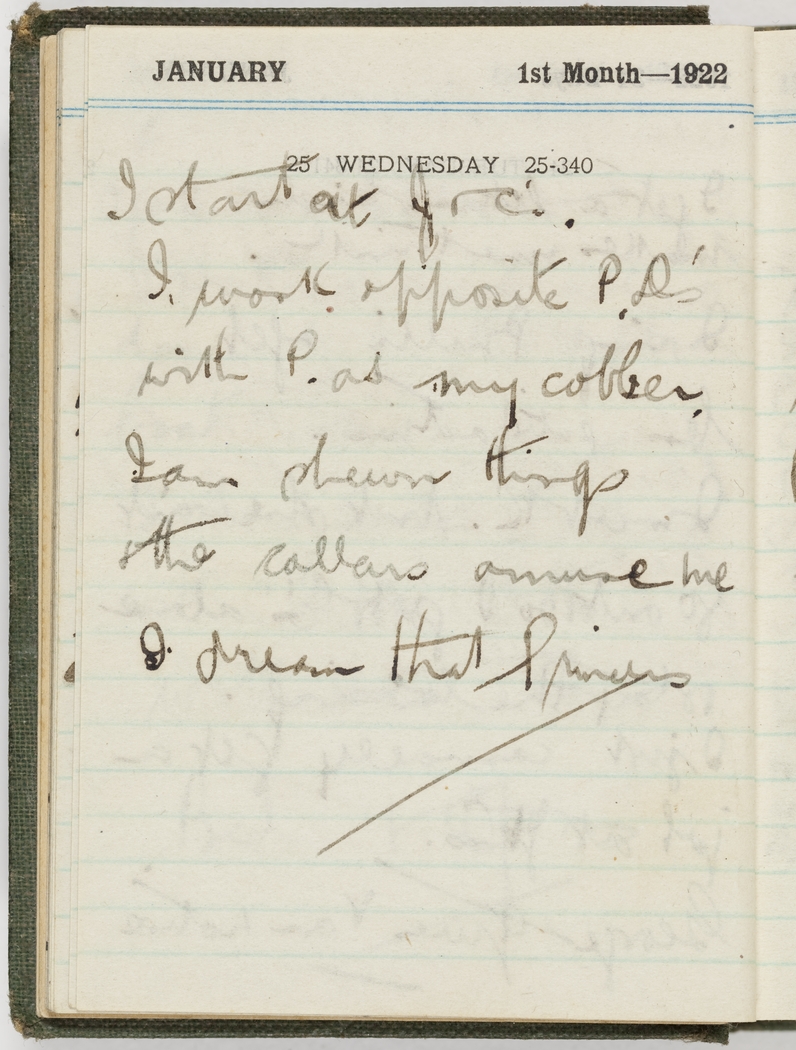 JANUARY 1st Month—1922
25 WEDNESDAY 25-340
I start at J & C's.
I work opposite P.D's
with P. as my cobber.
I am shewn things
& the collars amuse me
I dream that Princess